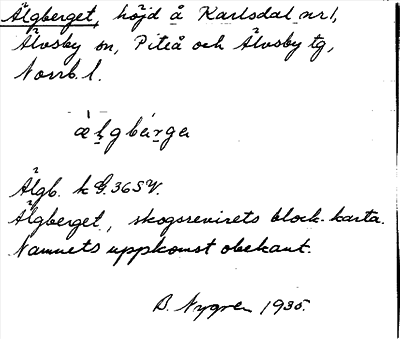 Älgberget, höjd å Karlsdal nr 1,
Älvsby sn, Piteå och Älvsby tg,
Norrb. l.
æ̀lgbærga
Älgb. k G. 36 SV.
Älgberget, skogsrevirets block-karta.
Namnets uppkomst obekant.
B. Nygren 1935.